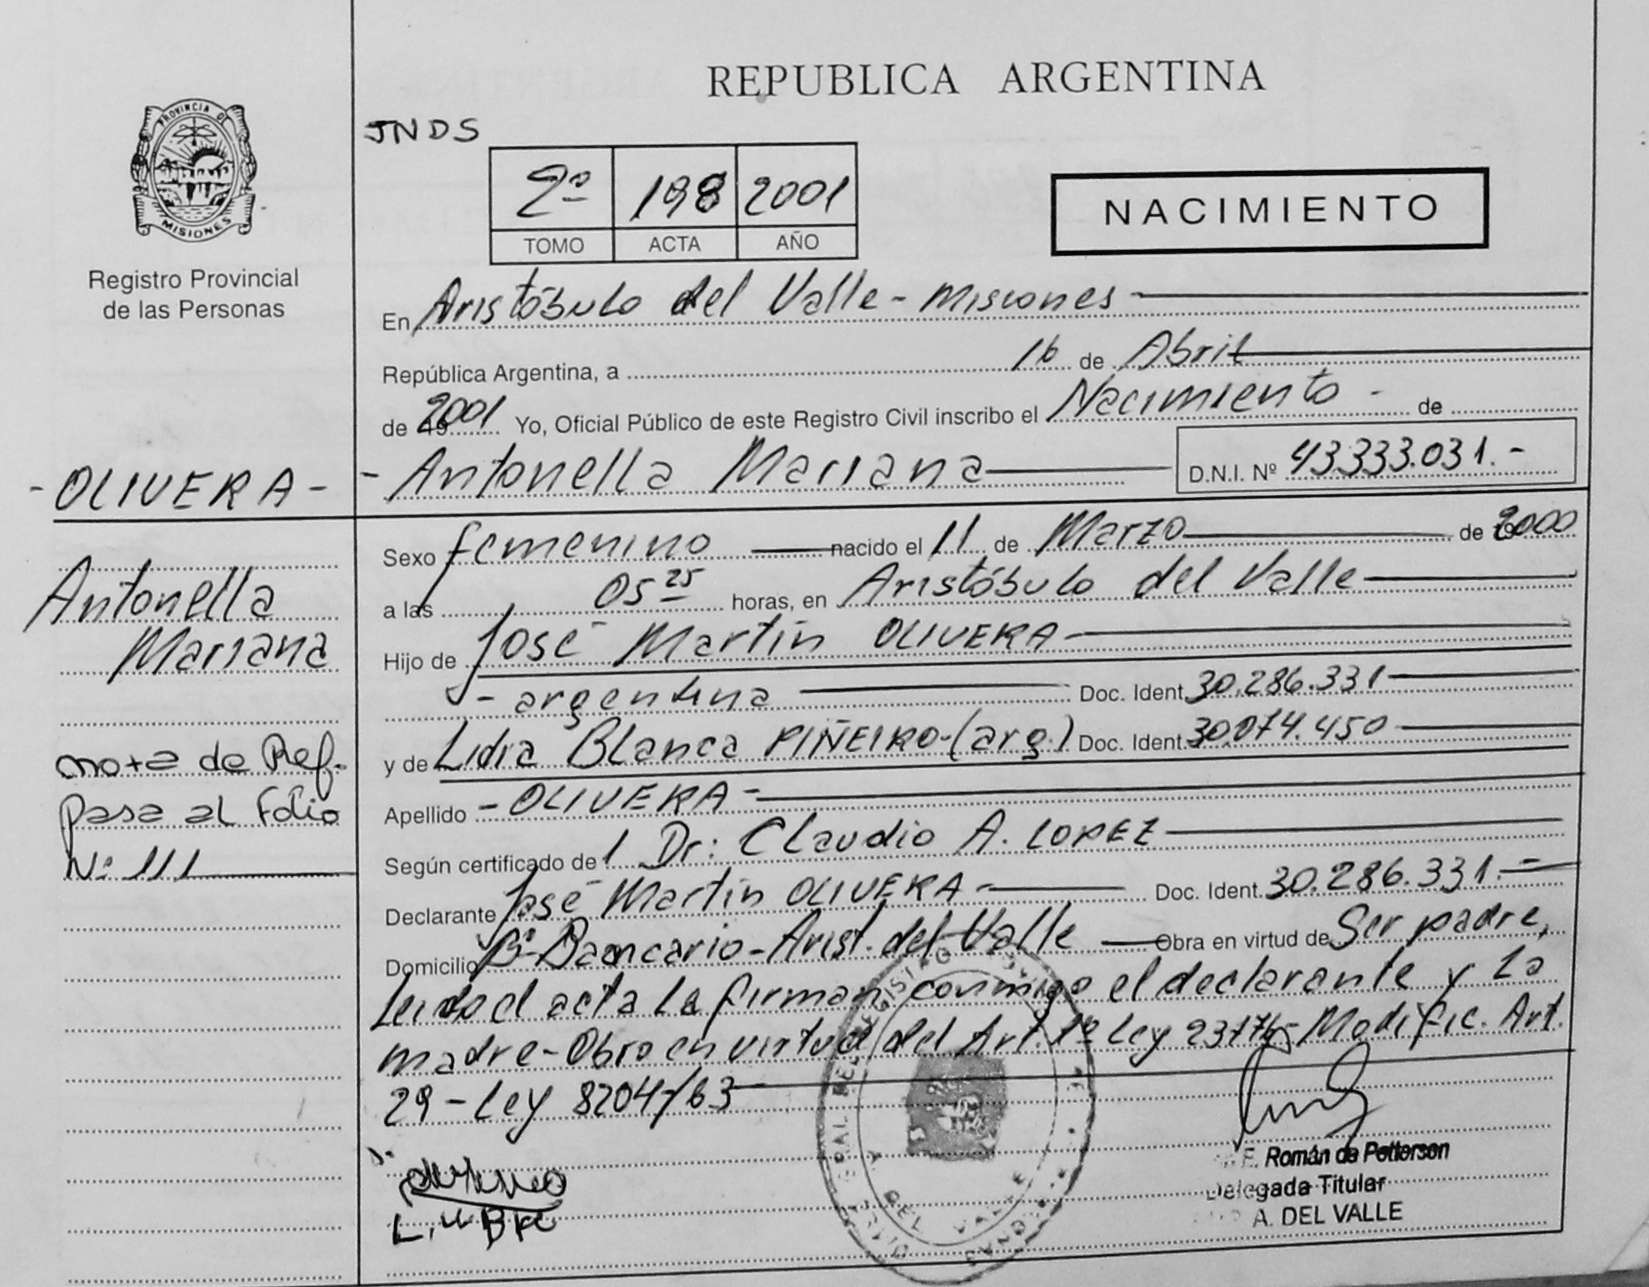 REPUBLICA ARGENTINA
PROVINCIA DE
MISIONES
Registro Provincial
de las Personas
JNDS
2º 198 2001
TOMO ACTA AÑO
NACIMIENTO
En Aristóbulo del Valle - Misiones
República Argentina, a 16 de Abril
de 2001 Yo, Oficial Público de este Registro Civil inscribo el Nacimiento - de
- Antonella Mariana D.N.I. Nº 43.333.031.-
- OLIVERA -
Antonella
Mariana
nota de Ref.
pasa al Folio
Nº 111
Sexo femenino nacido el 11 de Marzo de 2000
a las 05 25 horas, en Aristóbulo del Valle
Hijo de José Martín OLIVERA
- argentina Doc. Ident. 30.286.331
y de Lidia Blanca PIÑEIRO - (arg.) Doc. Ident. 30.074.450
Apellido - OLIVERA -
Según certificado de l Dr: Claudio A. LOPEZ
Declarante José Martín OLIVERA - Doc. Ident. 30.286.331.-
Domicilio Bº Bancario - Arist. del Valle Obra en virtud de Ser padre,
Leida el acta la firman conmigo el declarante y La
madre - Obro en virtud del Art. 1º Ley 23776 - Modific. Art.
29 - Ley 8204/63
E. Román de Petterson
Delegada Titular
A. DEL VALLE